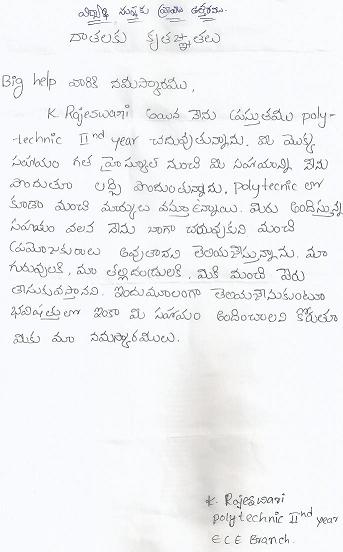 విద్యార్థి సంస్థకు వ్రాయు ఉత్తరము.
దాతలకు కృతజ్ఞతలు
Big help వారికి నమస్కారము,
K. Rajeswari అయిన నేను ప్రస్తుతము poly-
technic II nd year చదువుతున్నాను. మీ యొక్క
సహాయం గత హైస్కూల్ నుంచి మీ సహాయాన్ని నేను
పొందుతూ లబ్ధి పొందుతున్నాను. polytecnic లో
కూడా మంచి మార్కులు వస్తూ ఉన్నాయి. మీరు అందిస్తున్న
సహాయం వలన నేను బాగా చదువుకుని మంచి
ప్రయోజకురాలు అవుతానని తెలియచేస్తున్నాను. మా
గురువులకి, మా తల్లిదండ్రులకి, మీకి మంచి పేరు
తీసుకువస్తానని. ఇందుమూలంగా తెలియచేసుకుంటూ
భవిషత్తులో ఇంకా మీ సహాయం అందించాలని కోరుతూ
మీకు మా నమస్కారములు.
K. Rajeswari
polytechnic II nd year
ECE Branch.